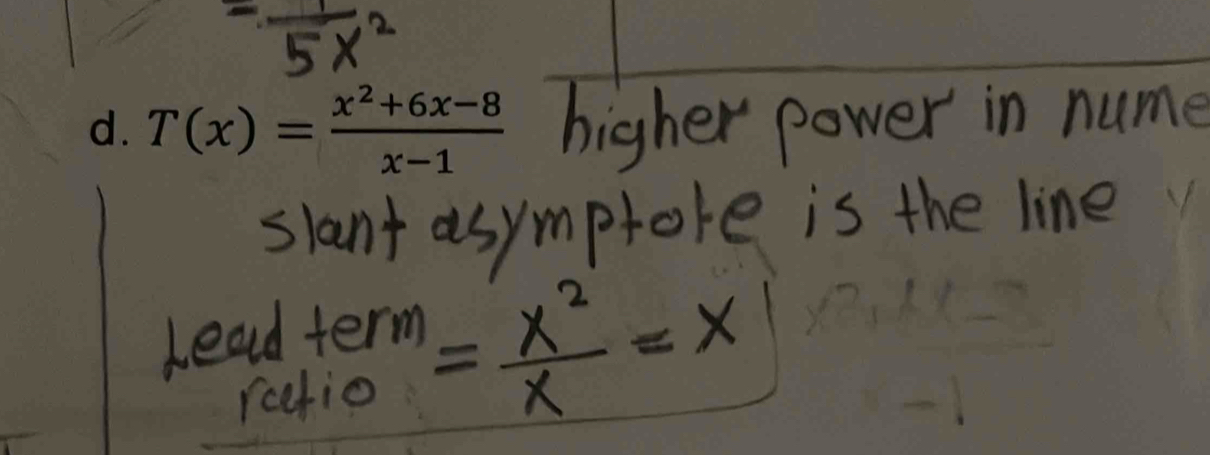 = 1/5x²
d. T(x) = (x²+6x−8)/(x−1) higher power in nume
slant asymptote is the line y
Lead term ratio = x²/x = x
−1